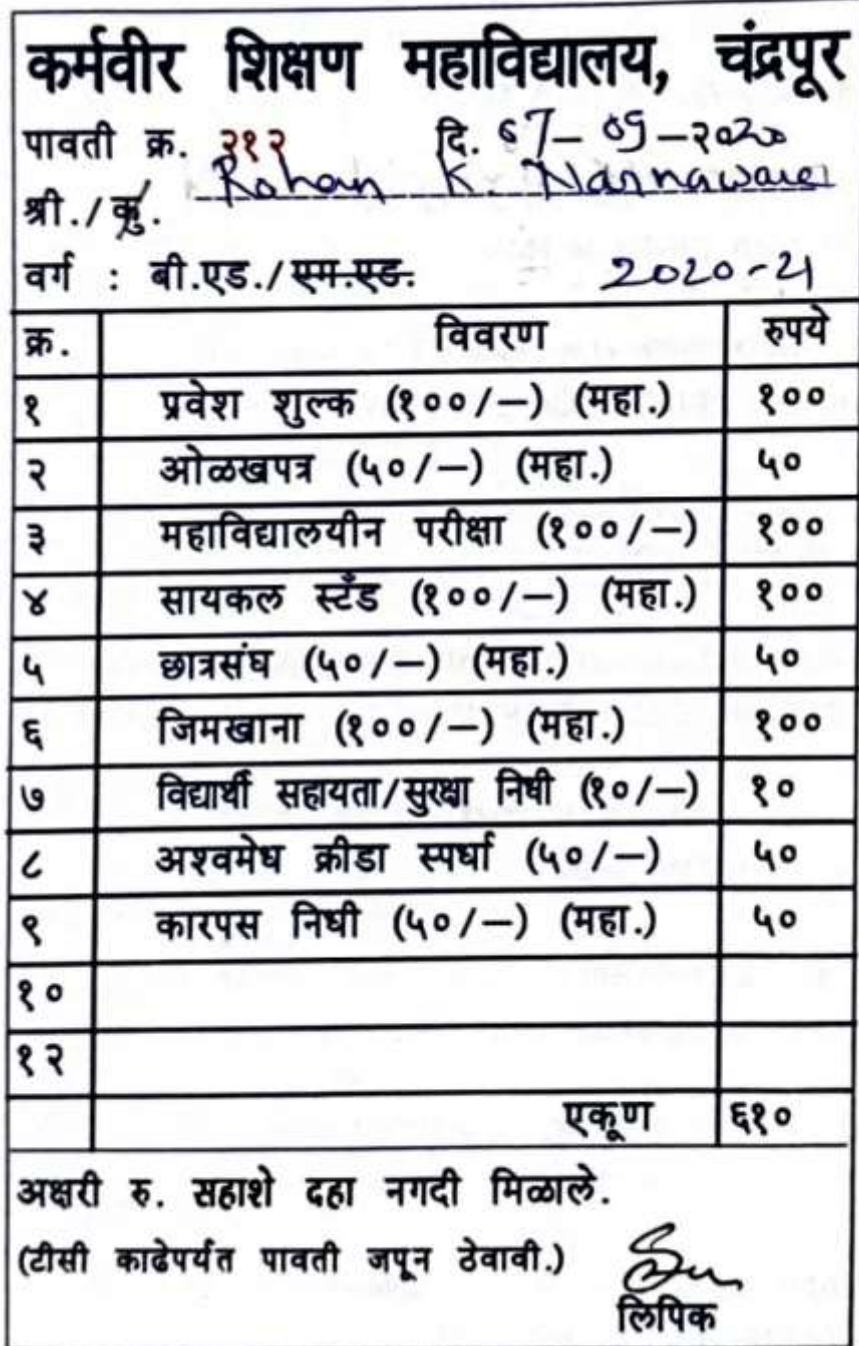 कर्मवीर शिक्षण महाविद्यालय, चंद्रपूर
पावती क्र. २१२ दि. 07-09-२०२०
श्री./कु. Rohan K. Nannaware
वर्ग : बी.एड./एम.एड. 2020-21
क्र. विवरण रुपये
१ प्रवेश शुल्क (१००/—) (महा.) १००
२ ओळखपत्र (५०/—) (महा.) ५०
३ महाविद्यालयीन परीक्षा (१००/—) १००
४ सायकल स्टँड (१००/—) (महा.) १००
५ छात्रसंघ (५०/—) (महा.) ५०
६ जिमखाना (१००/—) (महा.) १००
७ विद्यार्थी सहायता/सुरक्षा निधी (१०/—) १०
८ अश्वमेध क्रीडा स्पर्धा (५०/—) ५०
९ कारपस निधी (५०/—) (महा.) ५०
१०
१२
एकूण ६१०
अक्षरी रु. सहाशे दहा नगदी मिळाले.
(टीसी काढेपर्यत पावती जपून ठेवावी.)
लिपिक